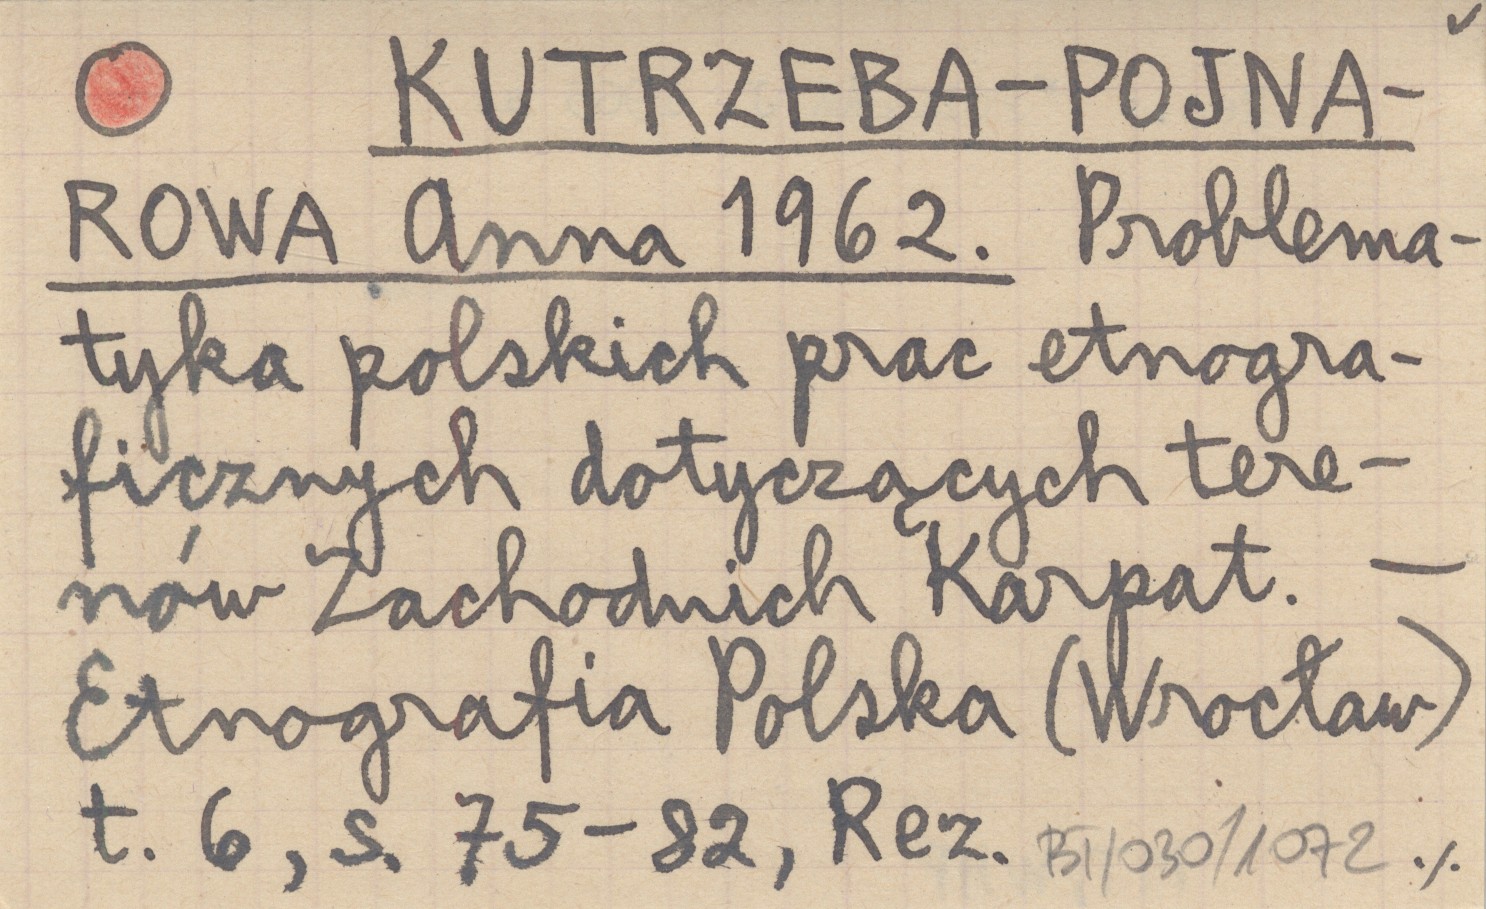 KUTRZEBA-POJNA-
ROWA Anna 1962. Problema-
tyka polskich prac etnogra-
ficznych dotyczących tere-
nów Zachodnich Karpat. —
Etnografia Polska (Wrocław)
t. 6, s. 75-82, Rez. BI/030/1072 ./.